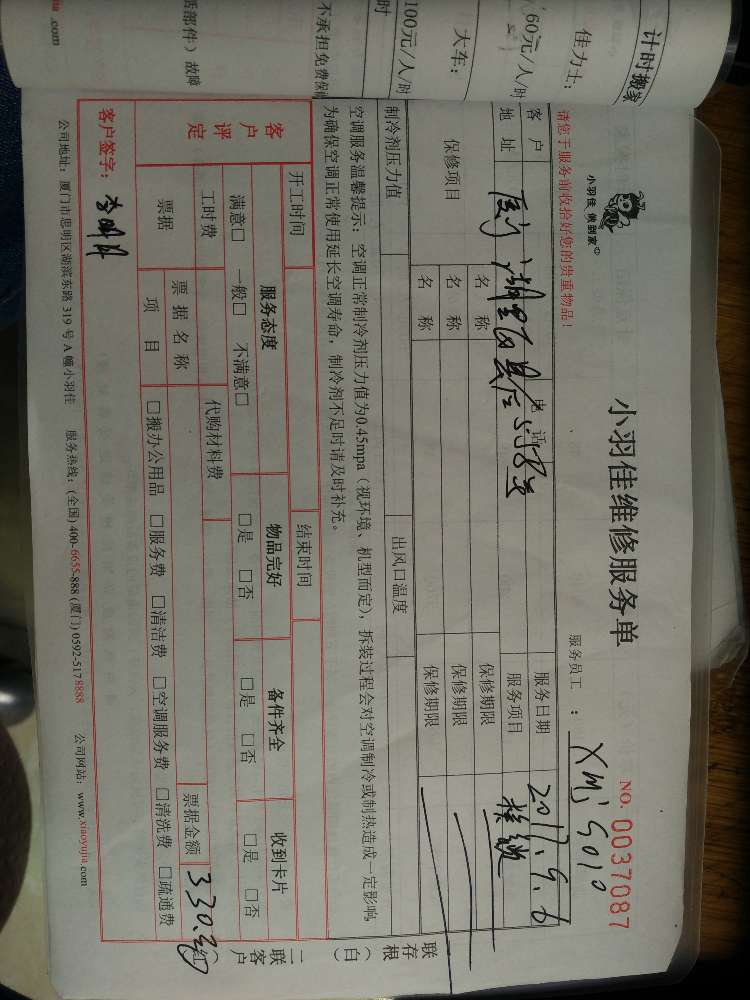 计时搬家
佳力士：
60元/人/时
大车：
100元/人/时
时
不承担免费保
括部件）故障
.com
小羽佳 佩到家
小羽佳维修服务单
NO. 0037087
请您于服务前收拾好您的贵重物品！
服务员工 ： XMj5010
客 户
地 址
电 话
服务日期 2017.9.6
服务项目
保修项目
名 称 保修期限
名 称 保修期限
名 称 保修期限
制冷剂压力值 出风口温度
空调服务温馨提示：空调正常制冷剂压力值为0.45mpa（视环境、机型而定），拆装过程会对空调制冷或制热造成一定影响
为确保空调正常使用延长空调寿命，制冷剂不足时请及时补充。
开工时间 结束时间
客户评定
服务态度 物品完好 备件齐全 收到卡片
满意□ 一般□ 不满意□ □是 □否 □是 □否 □是 □否
工时费 代购材料费
票据 票据名称 票据金额 330.
项 目 □搬办公用品 □服务费 □清洁费 □空调服务费 □清洗费 □疏通费
客户签字： 李明月
公司地址：厦门市思明区湖滨东路 319 号 A 幢小羽佳 服务热线：(全国) 400-6655-888 (厦门) 0592-5178888 公司网站：www.xiaoyujia.com
一联存根（白）
二联客户（红）